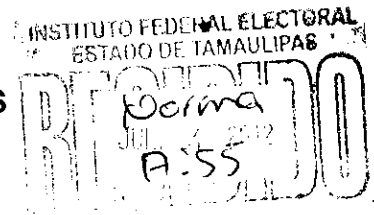 INSTITUTO FEDERAL ELECTORAL
ESTADO DE TAMAULIPAS
S
RECIBIDO
Norma
JUL. 2012
A:55